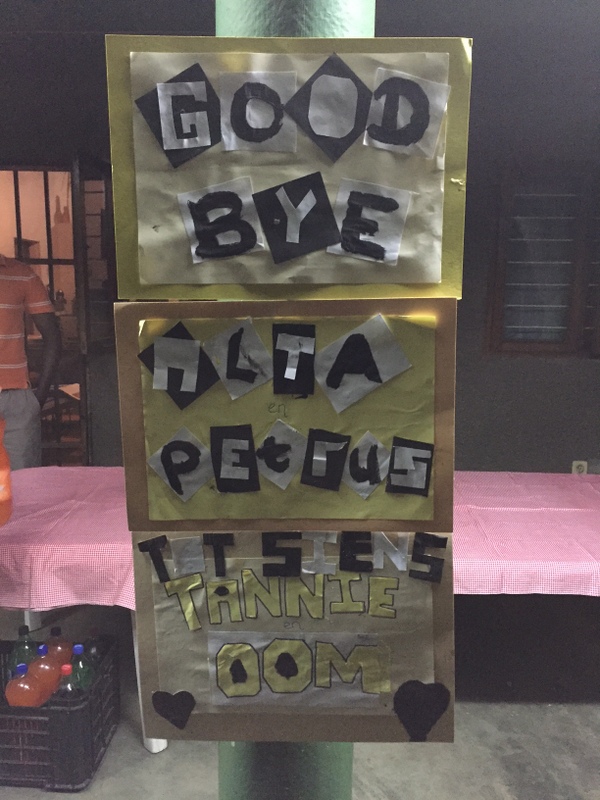 GOOD
BYE
ALTA
en
PEtrus
TOT SIENS
TANNIE
en
OOM